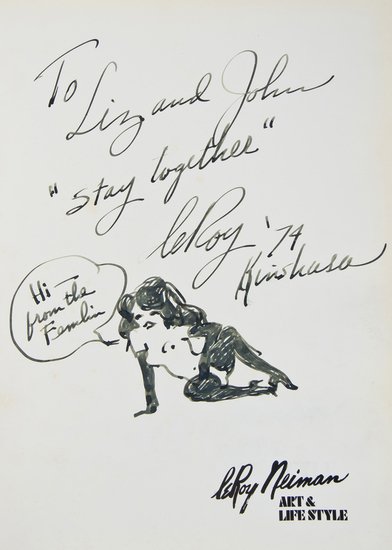 To
Liz and John
"stay together"
leRoy '74
Kinshasa
Hi
from the
Femlin
leRoy Neiman
ART &
LIFE STYLE